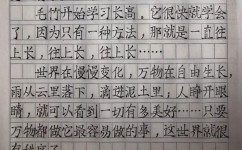 毛竹开始学习长高，它很快就学会
了，因为只有一种方法，那就是一直往
上长，往上长，往上长……
世界在慢慢变化，万物在自由生长，
雨从云里落下，滴进泥土里，人睁开眼
睛，就可以看到一切有多美好……只要
万物都做它最容易做的事，这世界就很